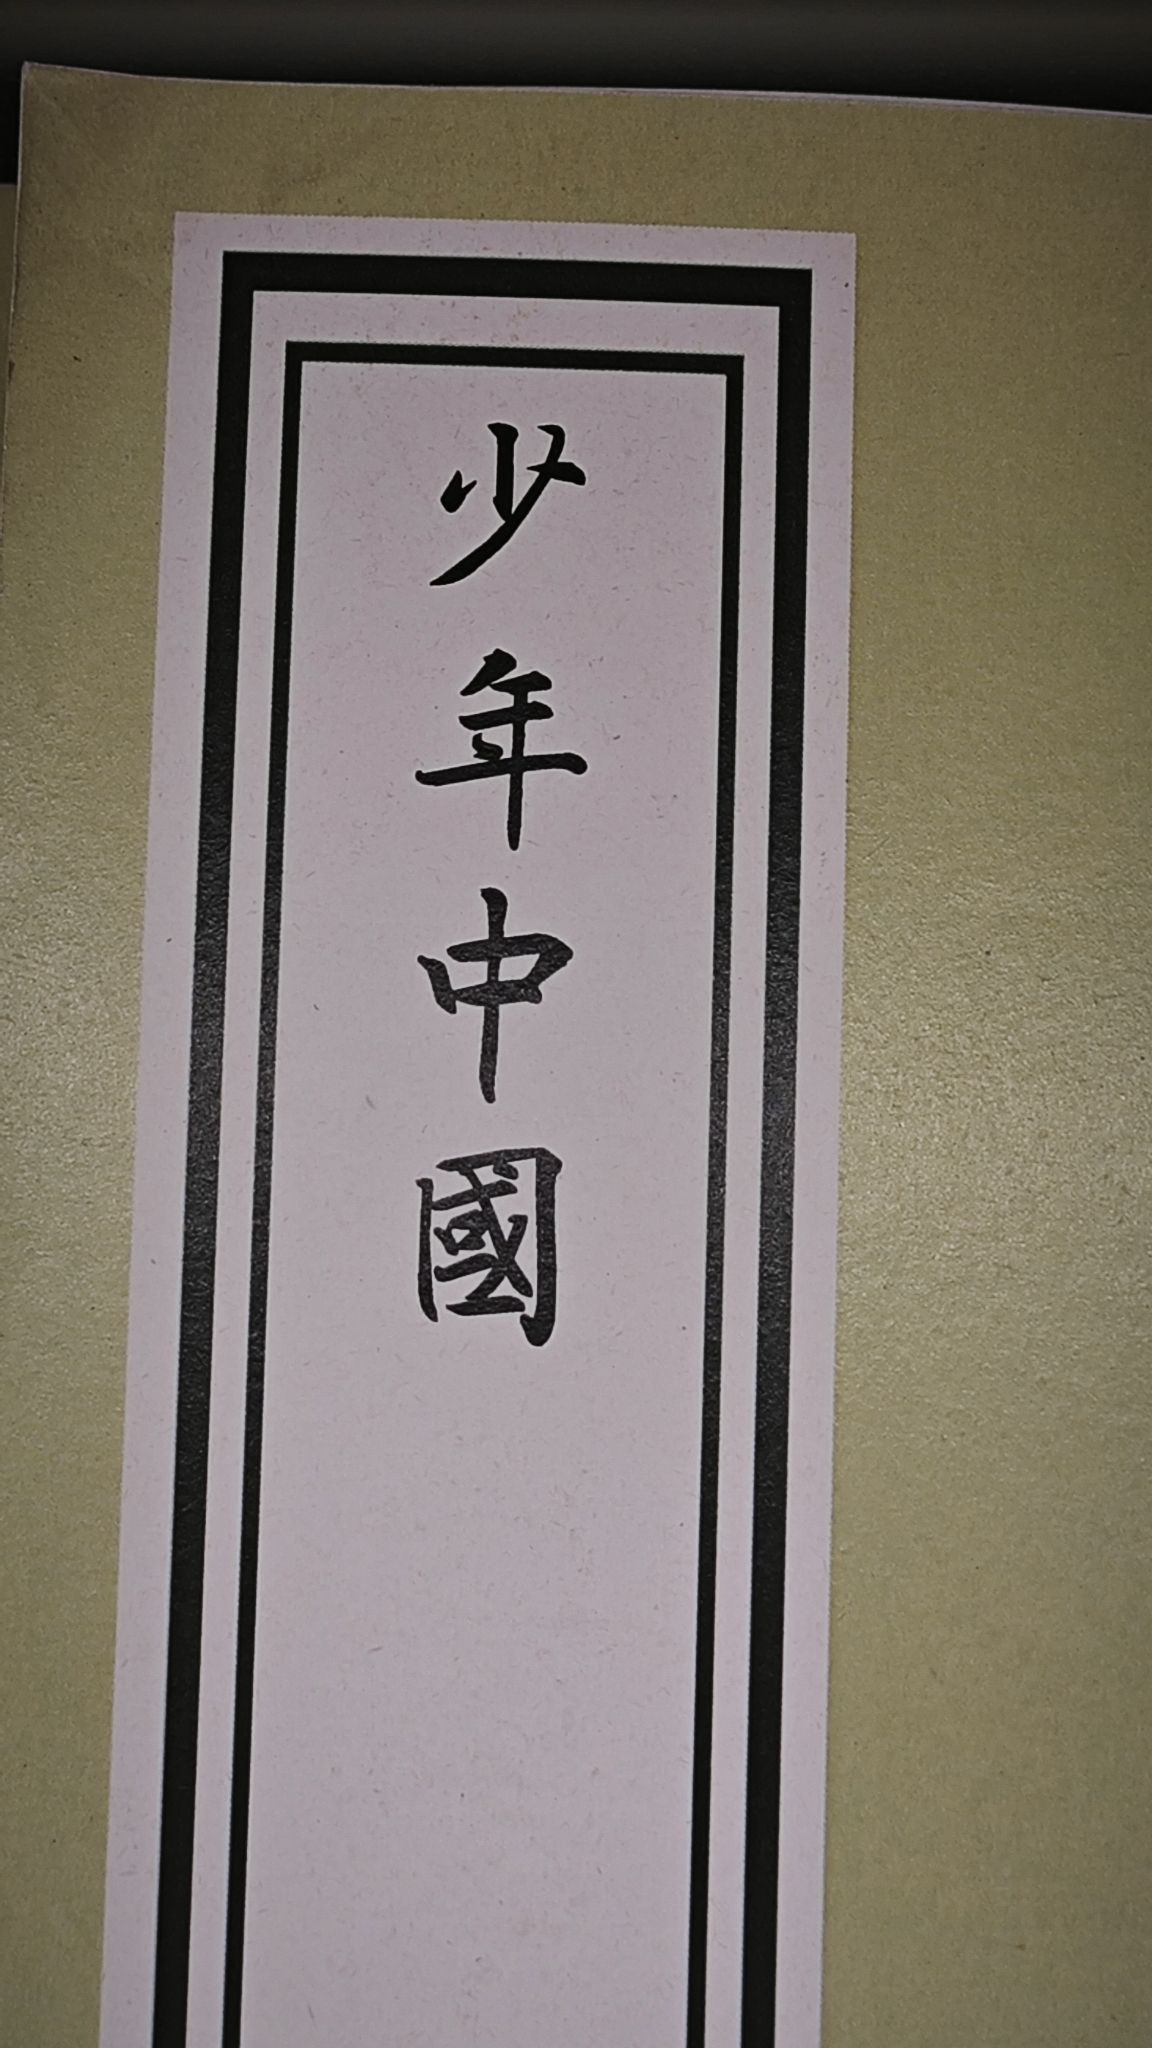 少年中國